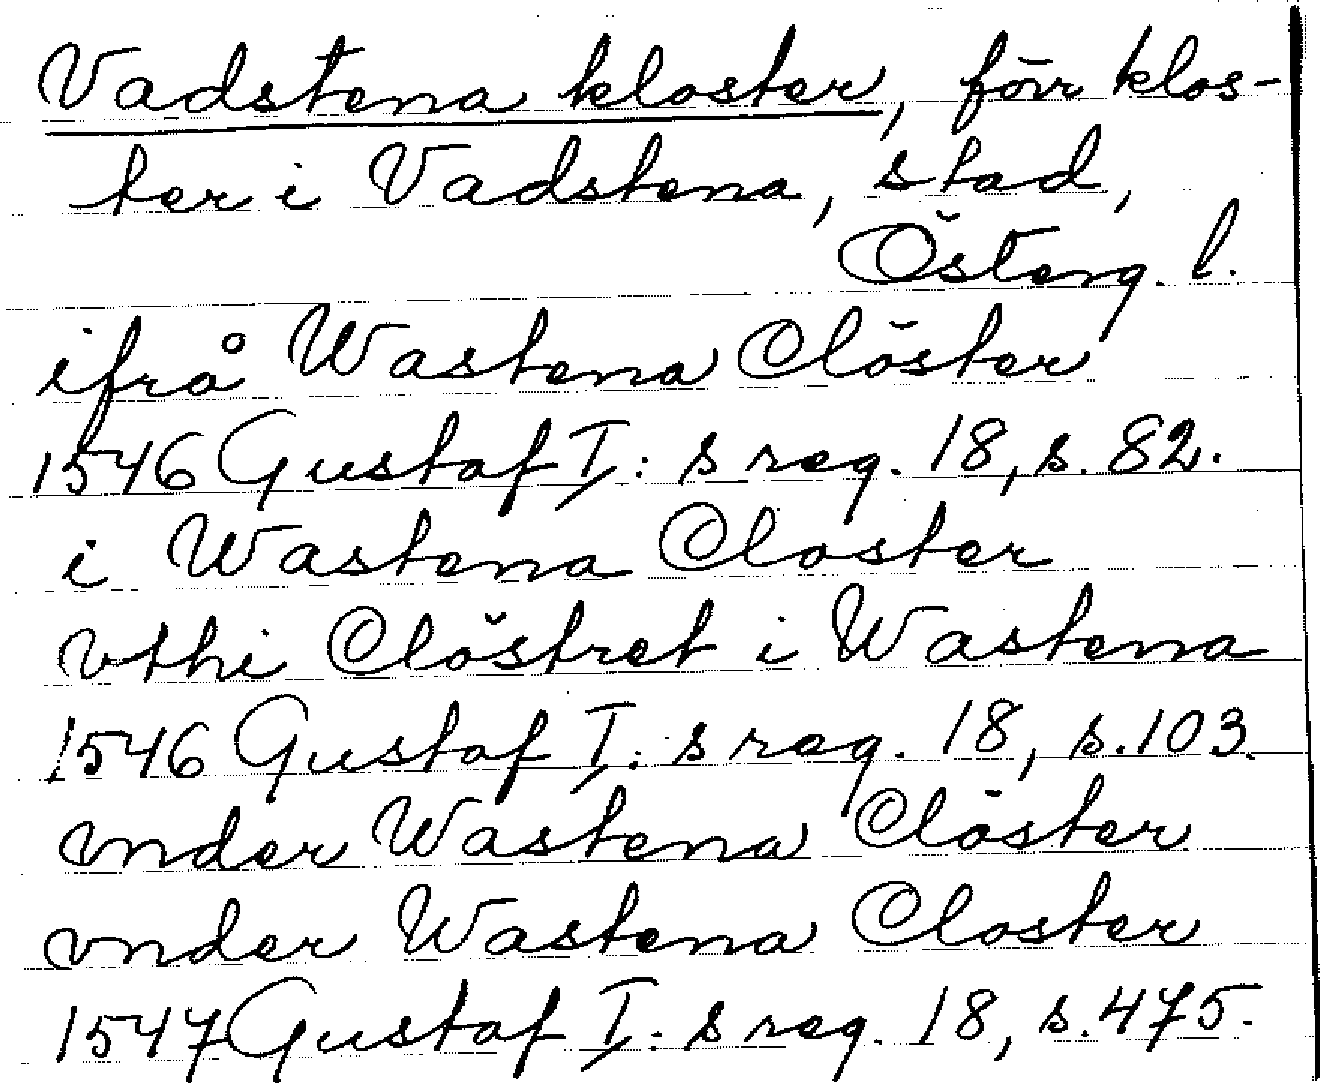 Vadstena kloster, förr klos-
ter i Vadstena, stad,
Österg. l.
ifrå Wastena Clöster
1546 Gustaf I: s reg. 18, s. 82.
i Wastena Closter
vthi Clöstret i Wastena
1546 Gustaf I: s reg. 18, s. 103.
vnder Wastena Clöster
vnder Wastena Closter
1547 Gustaf I: s reg. 18, s. 475.